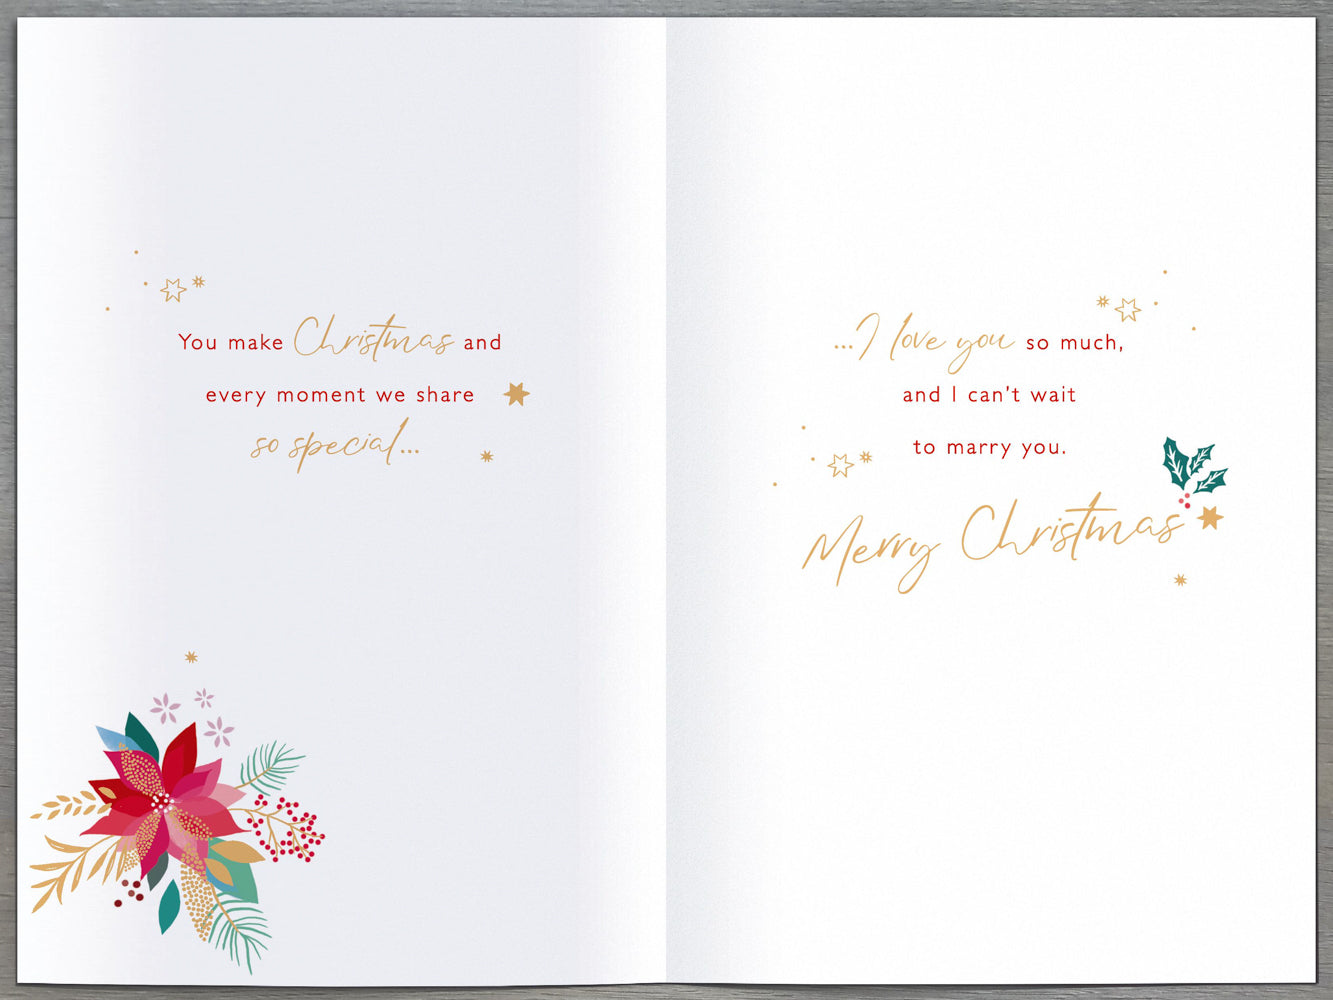 You make Christmas and
every moment we share
so special...
...I love you so much,
and I can't wait
to marry you.
Merry Christmas